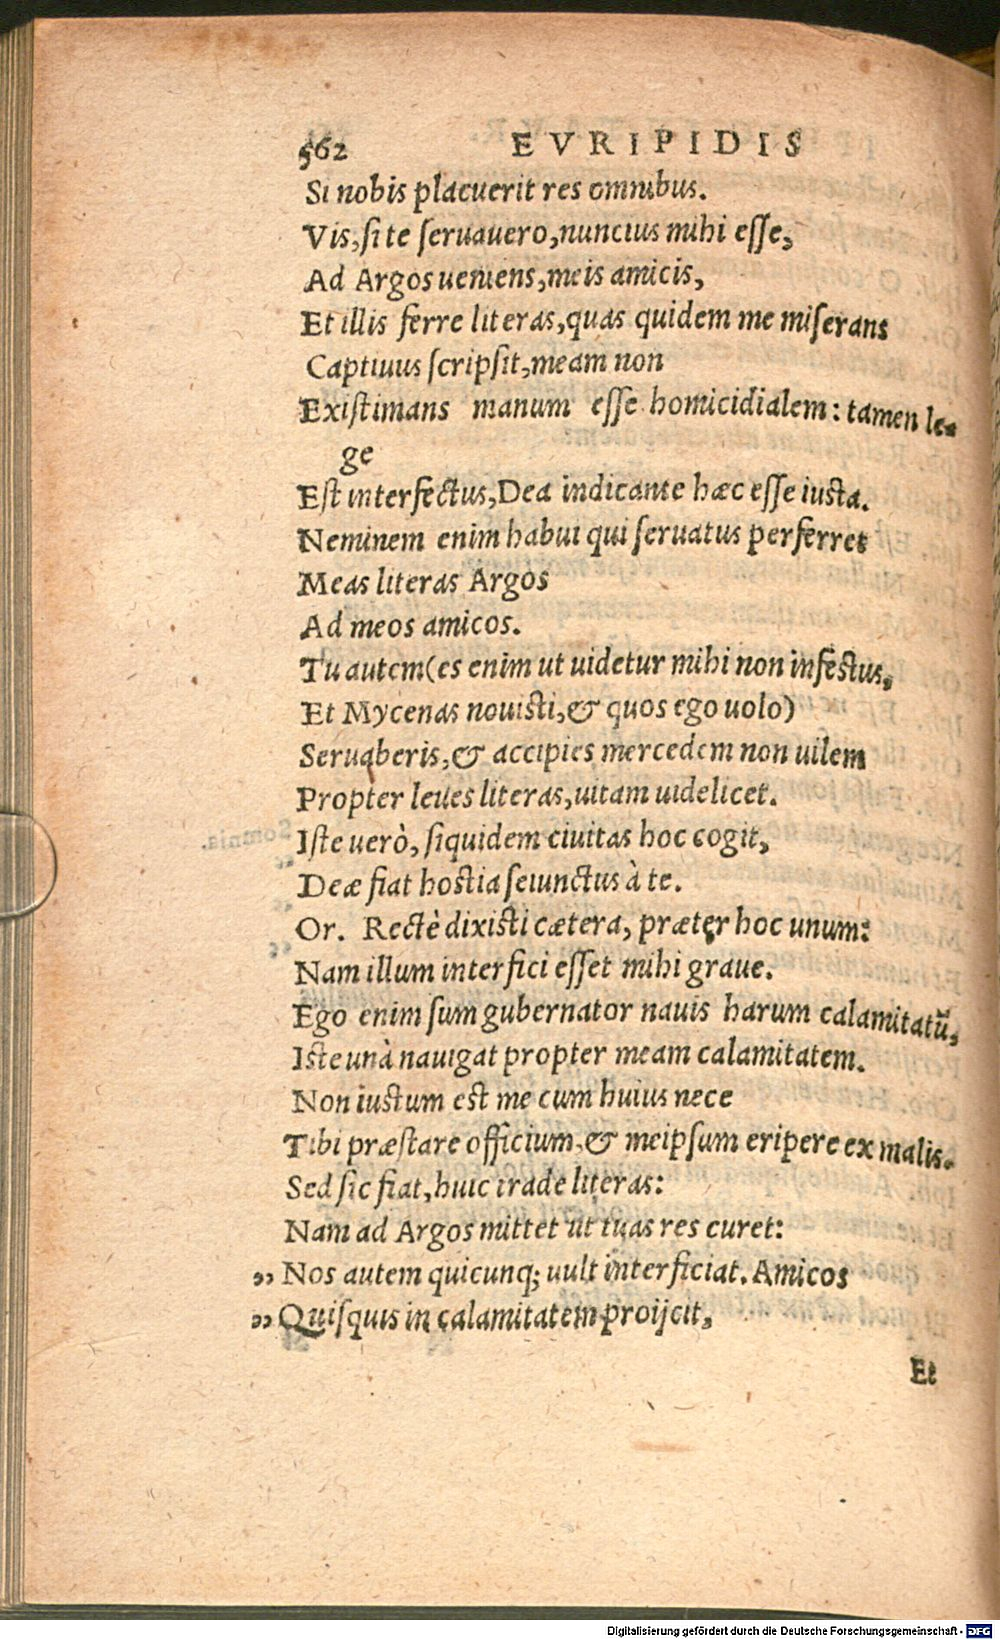 562 EVRIPIDIS
Si nobis placuerit res omnibus.
Vis, si te seruauero, nuncius mihi esse,
Ad Argos ueniens, meis amicis,
Et illis ferre literas, quas quidem me miserans
Captiuus scripsit, meam non
Existimans manum esse homicidialem: tamen le-
ge
Est interfectus, Dea indicante hæc esse iusta.
Neminem enim habui qui seruatus perferret
Meas literas Argos
Ad meos amicos.
Tu autem (es enim ut uidetur mihi non infestus,
Et Mycenas nouisti, & quos ego uolo)
Seruaberis, & accipies mercedem non uilem
Propter leues literas, uitam uidelicet.
Iste uerò, siquidem ciuitas hoc cogit,
Deæ fiat hostia seiunctus à te.
Or. Rectè dixisti cætera, præter hoc unum:
Nam illum interfici esset mihi graue.
Ego enim sum gubernator nauis harum calamitatũ,
Iste unà nauigat propter meam calamitatem.
Non iustum est me cum huius nece
Tibi præstare officium, & meipsum eripere ex malis.
Sed sic fiat, huic trade literas:
Nam ad Argos mittet ut tuas res curet:
„ Nos autem quicunq; uult interficiat. Amicos
„ Quisquis in calamitatem proijcit,
Et
Digitalisierung gefördert durch die Deutsche Forschungsgemeinschaft - DFG